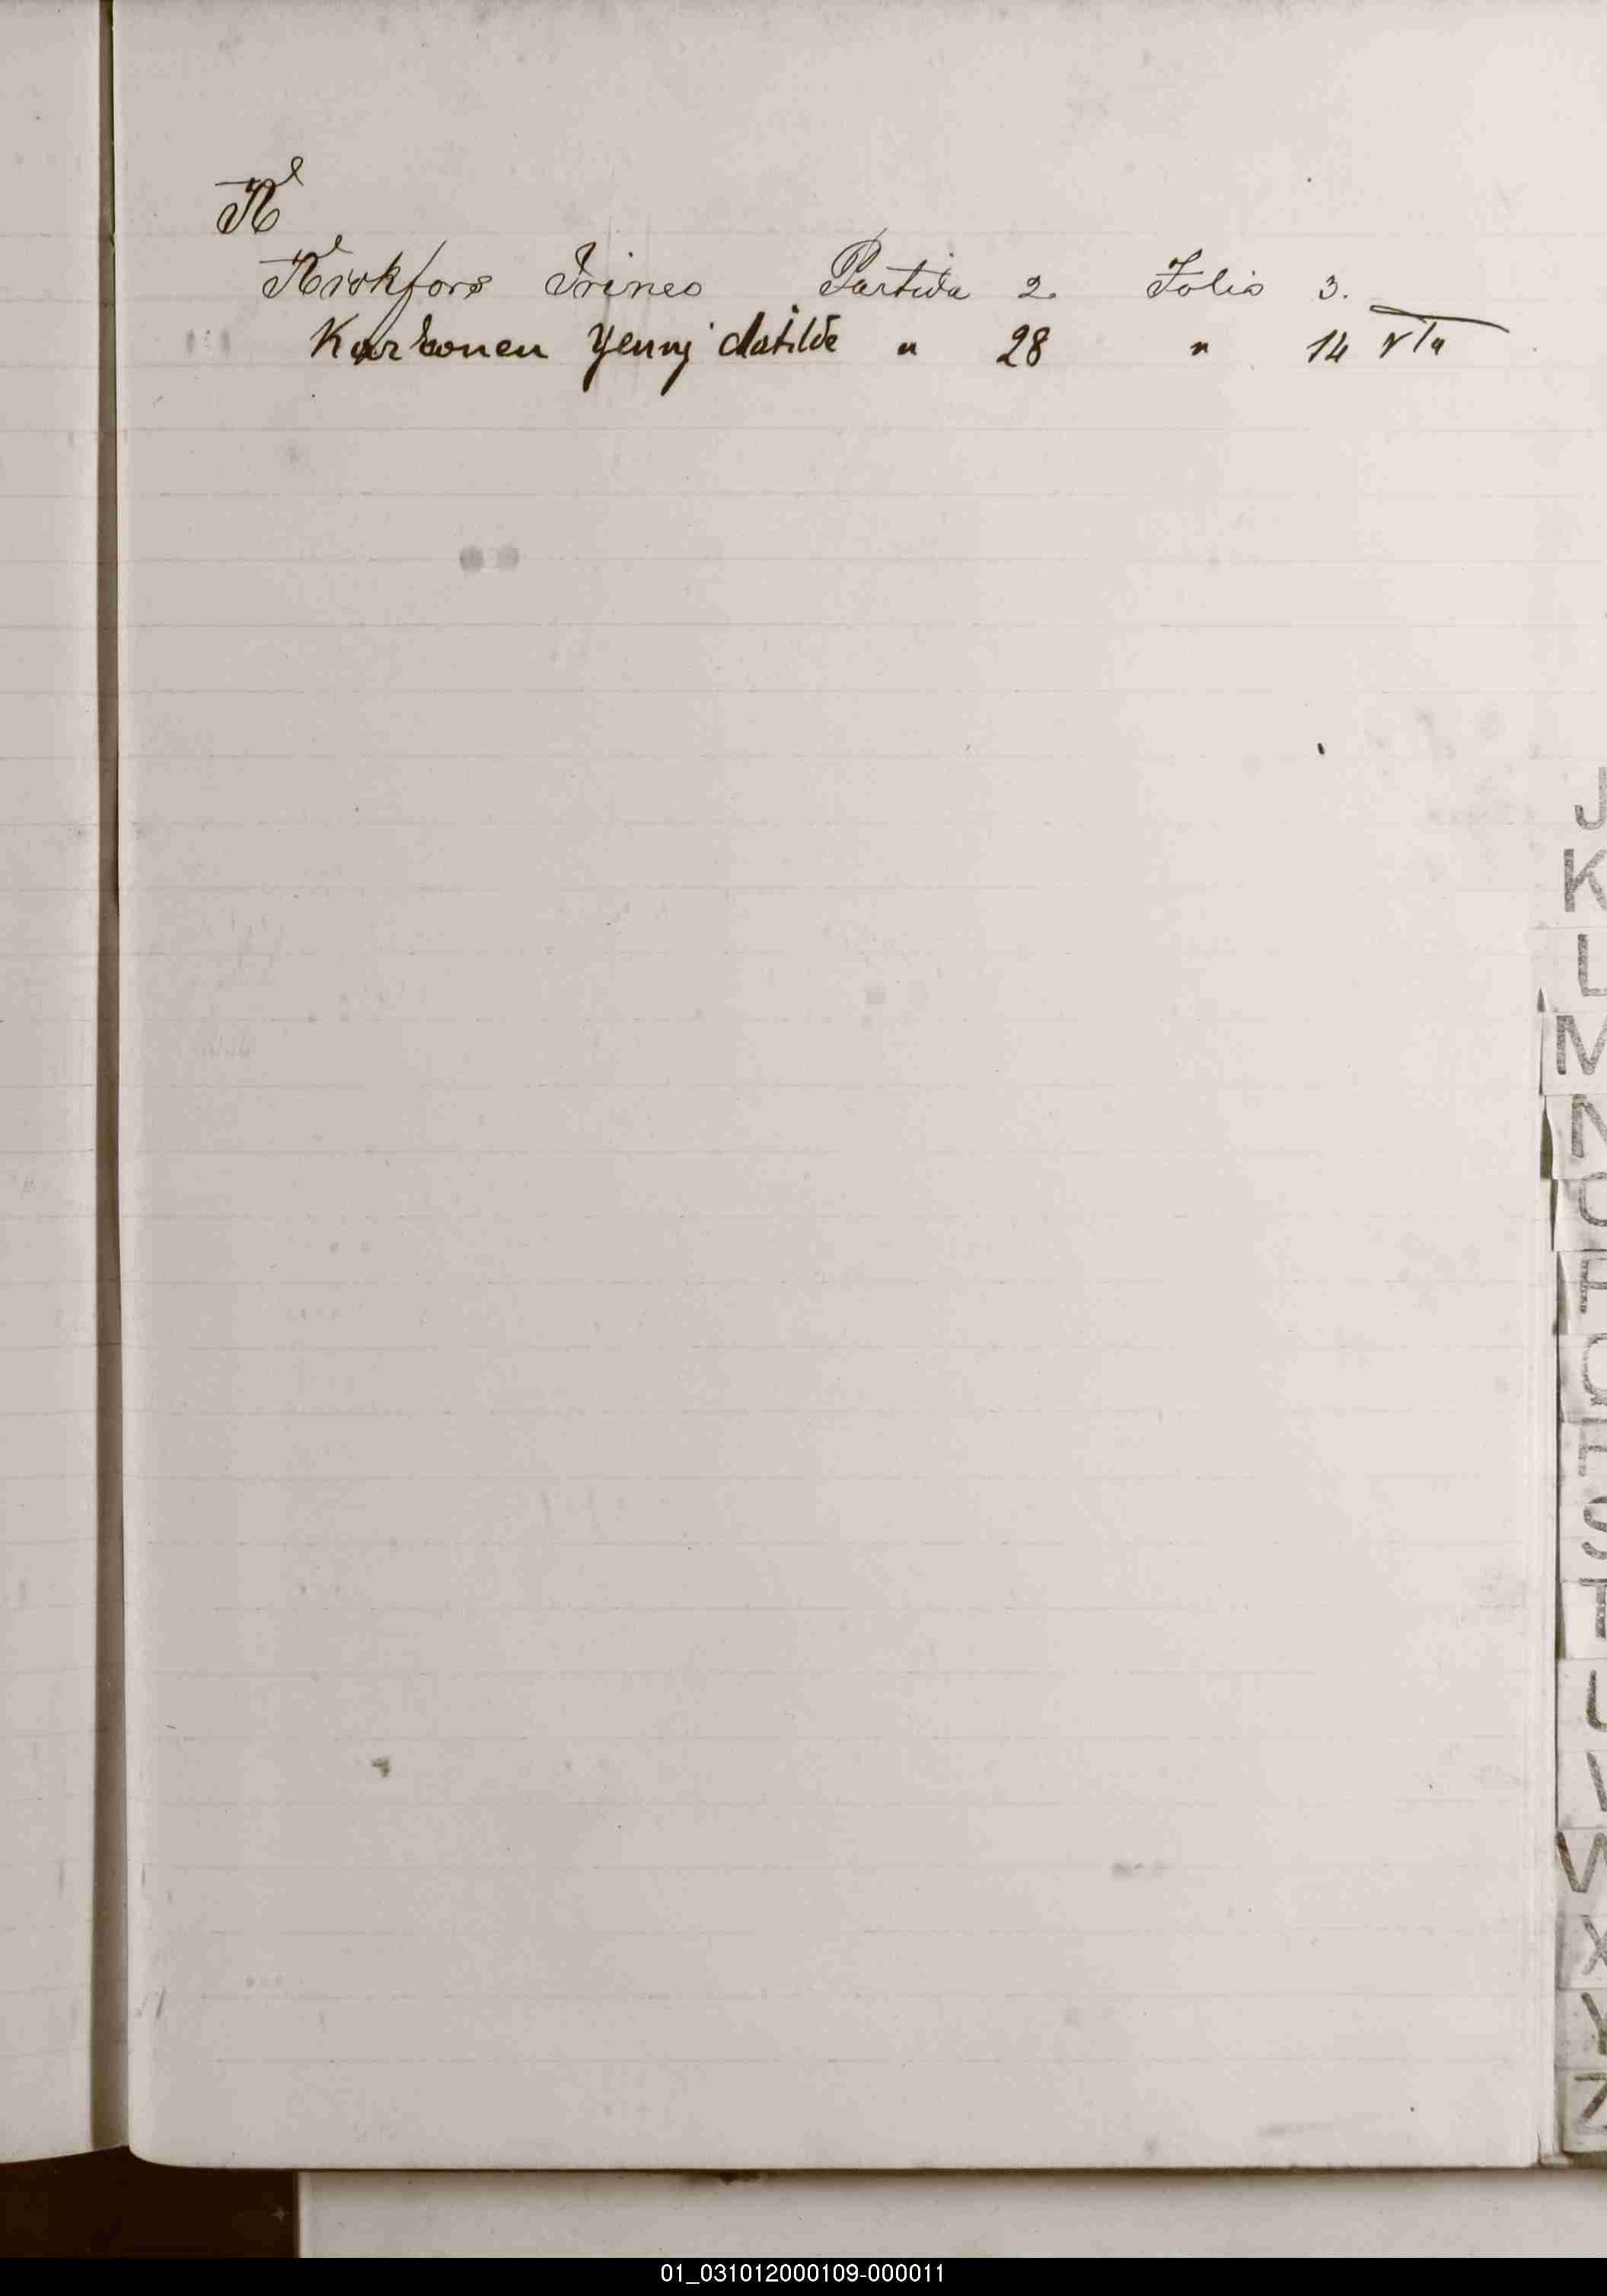 K
Krokfors Irineo Partida 2. Folio 3.
Karhonen Yenny Matilde " 28 " 14 vta
J
K
L
M
N
O
P
Q
R
S
T
U
V
W
X
Y
Z
01_031012000109-000011